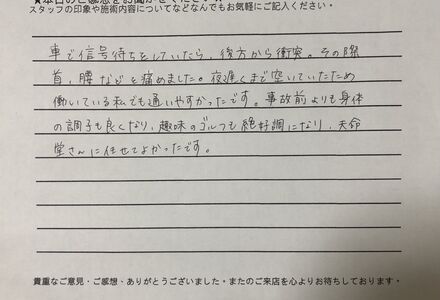 ★本日のご感想をお聞かせくださ
スタッフの印象や施術内容についてなどなんでもお気軽にご記入ください・
車で信号待ちをしていたら、後方から衝突。その際
首、腰などを痛めました。夜遅くまで空いていたため
働いている私でも通いやすかったです。事故前よりも身体
の調子も良くなり、趣味のゴルフも絶好調になり、天命
堂さんに任せてよかったです。
貴重なご意見・ご感想・ありがとうございました・またのご来店を心よりお待ちしております・